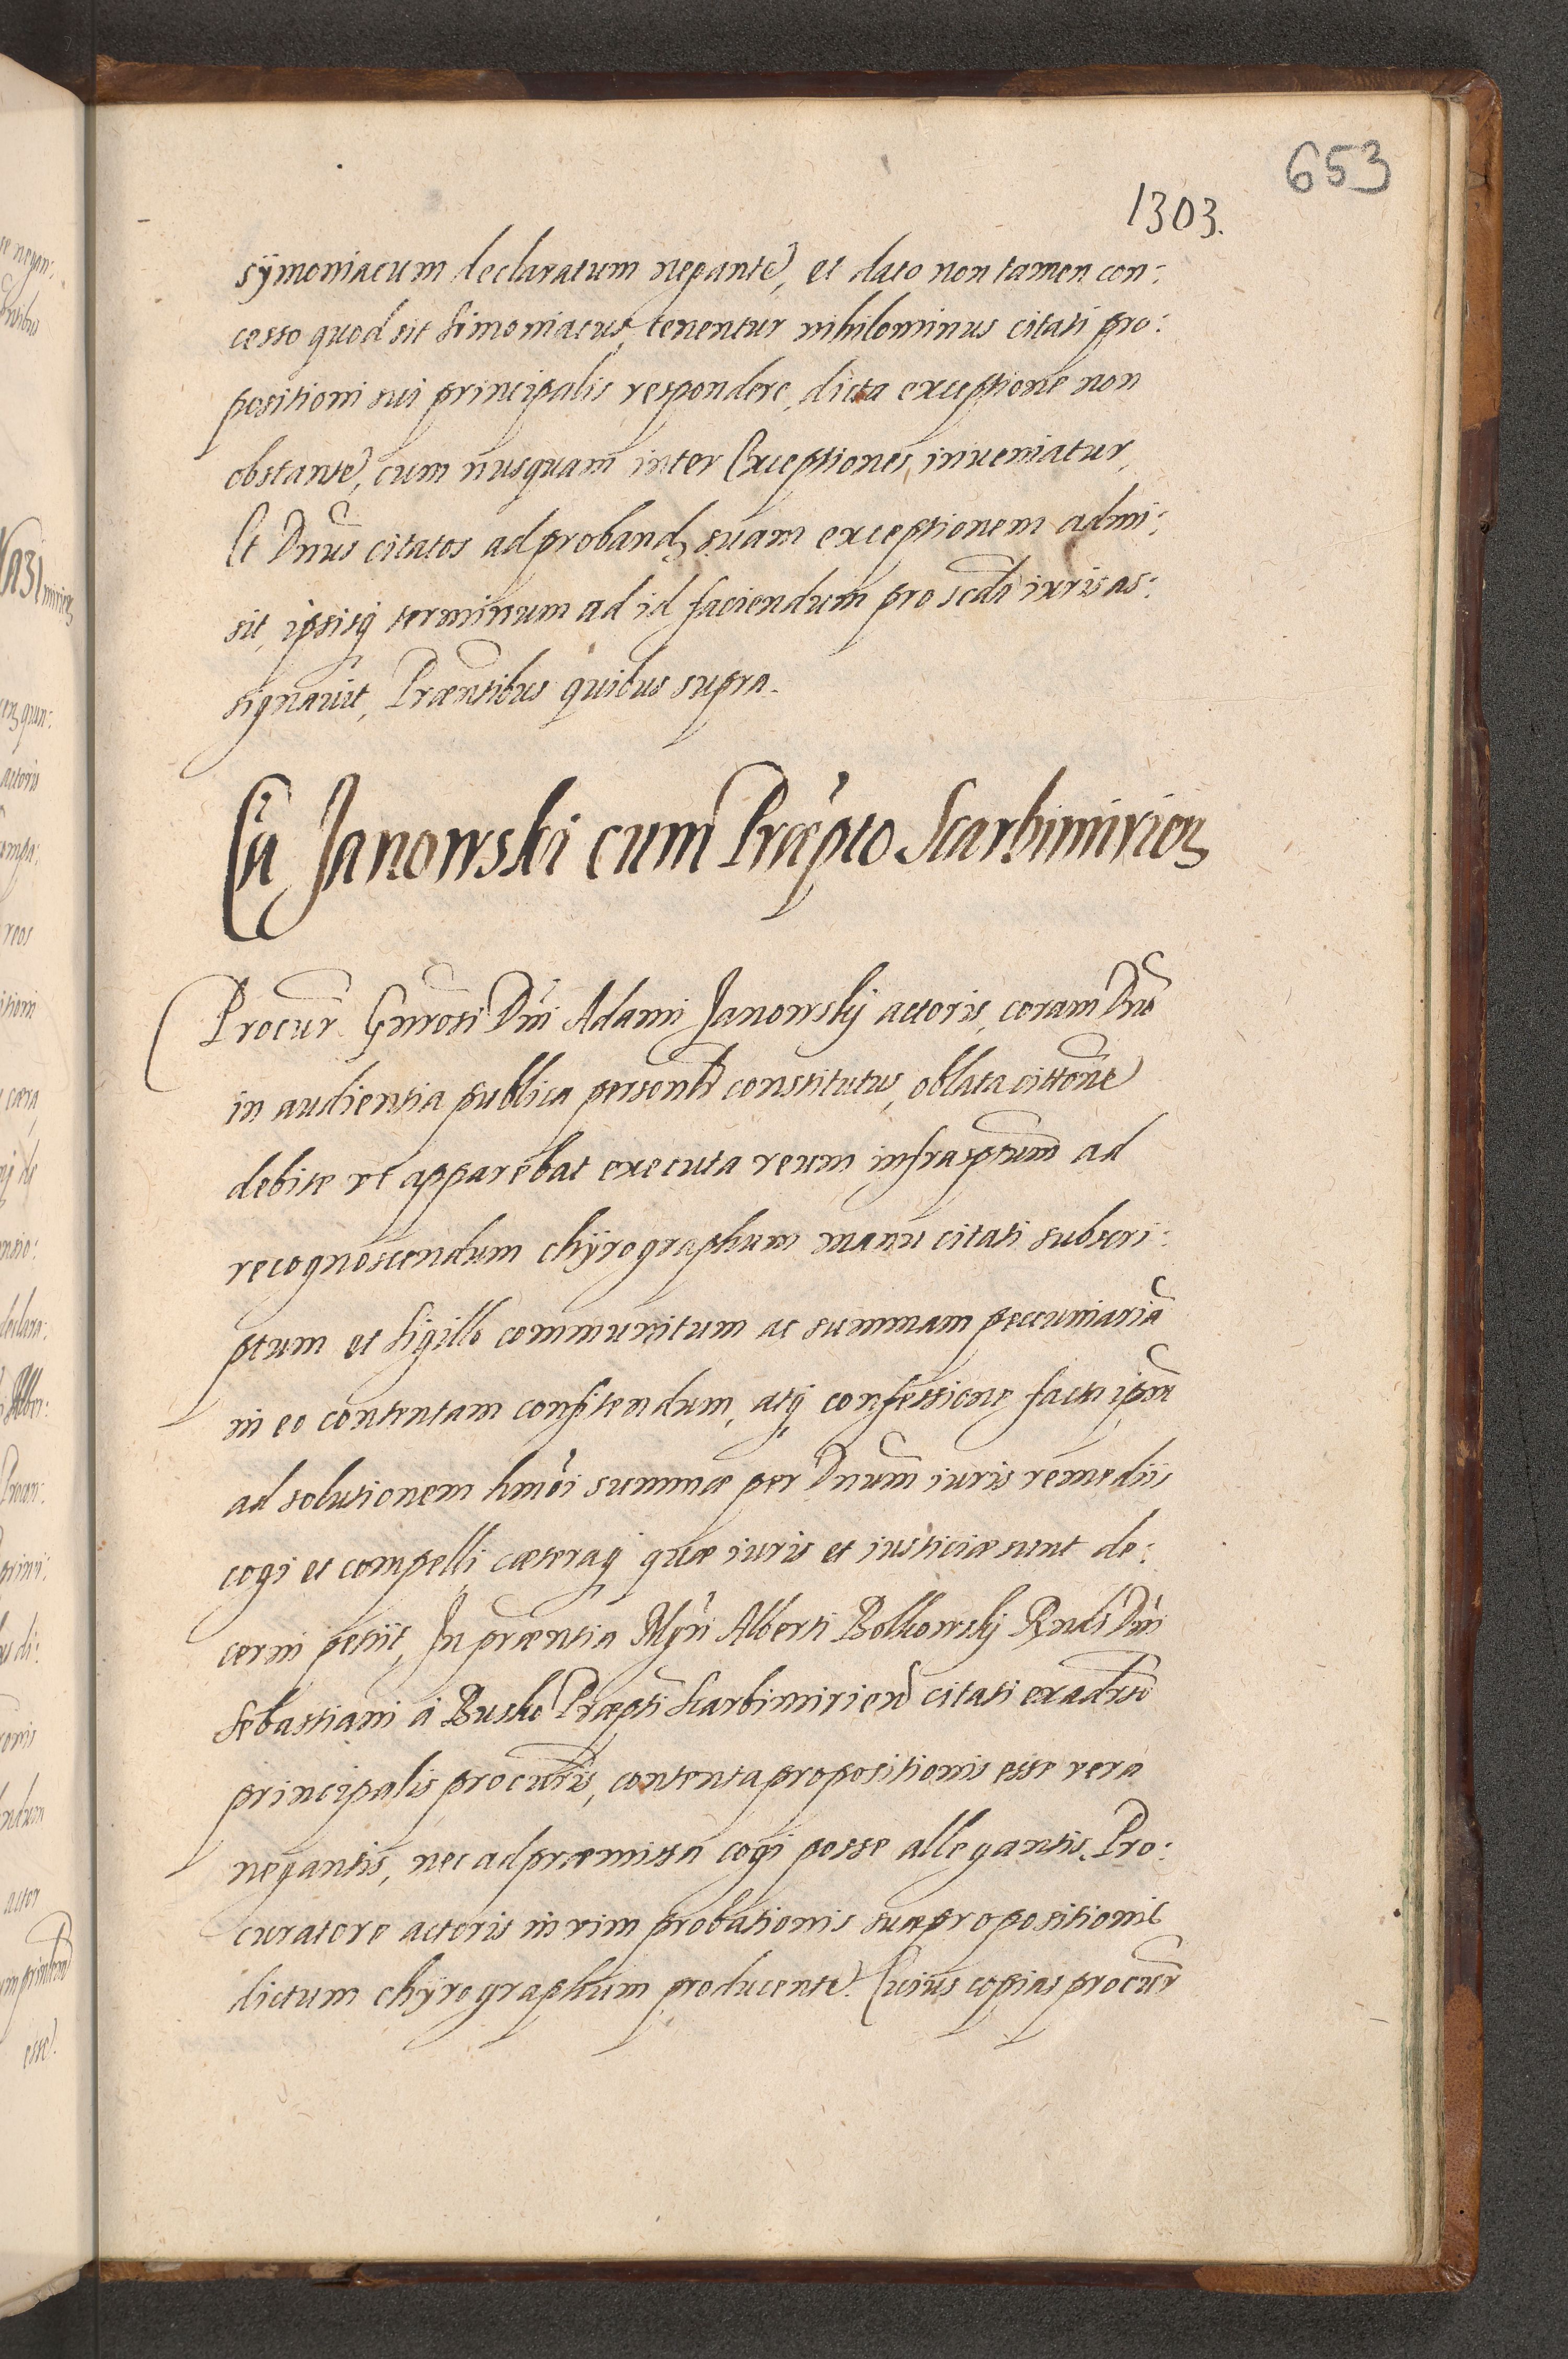 653
1303.
sÿmoniacum declaratum negante, et dato non tamen con:
cesso quod sit simoniacus, tenentur nihilominus citati pro:
positioni sui principalis respondere, dicta exceptione non
obstante, cum nusquam inter Exceptiones inveniatur,
Et Dnus citatos ad proband suam exceptionem admi:
sit, ipsisq terminum ad id faciendum pro scda iuris as:
signavit, Præntibus quibus supra.
Ca Janowski cum Præpto Scarbimirien
Procur Gnrosi Dni Adami Janowskÿ actoris, coram Dno
in audientia publica personlr constitutus, oblata cittone
debite ut apparebat executa reum infrasptum ad
recognoscendum chÿrographum manu citati subscri:
ptum et sigillo communitum ac summam pecuniaria
in eo contentam confitendum, atq confessione facta ipm
ad solutionem hmoi summæ per Dnum iuris remediis
cogi et compelli cæteraq quæ iuris et iusticiæ sunt de:
cerni petiit, In præntia Mgri Alberti Bolkowskÿ Rndi Dni
Sebastiani à Busko Præpti Scarbimirien citati ex adrso
principalis procuris, contenta propositionis esse vera
negantis, nec ad præmissa cogi posse allegantis, Pro:
curatore actoris in vim probationis suæ propositionis
dictum chÿrographum producente. Cuius copias procur